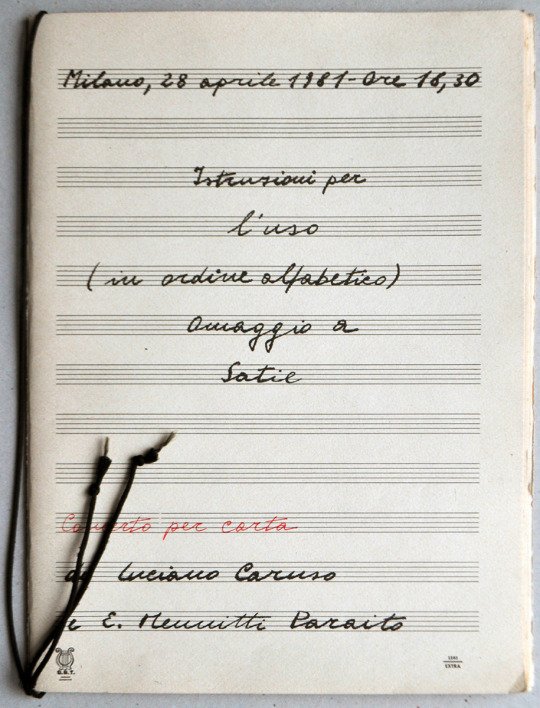 Milano, 28 aprile 1981 - Ore 18,30
Istruzioni per
l'uso
(in ordine alfabetico)
Omaggio a
Satie
Concerto per carta
di Luciano Caruso
e E. Mennitti Paraito
G.R.T.
EXTRA